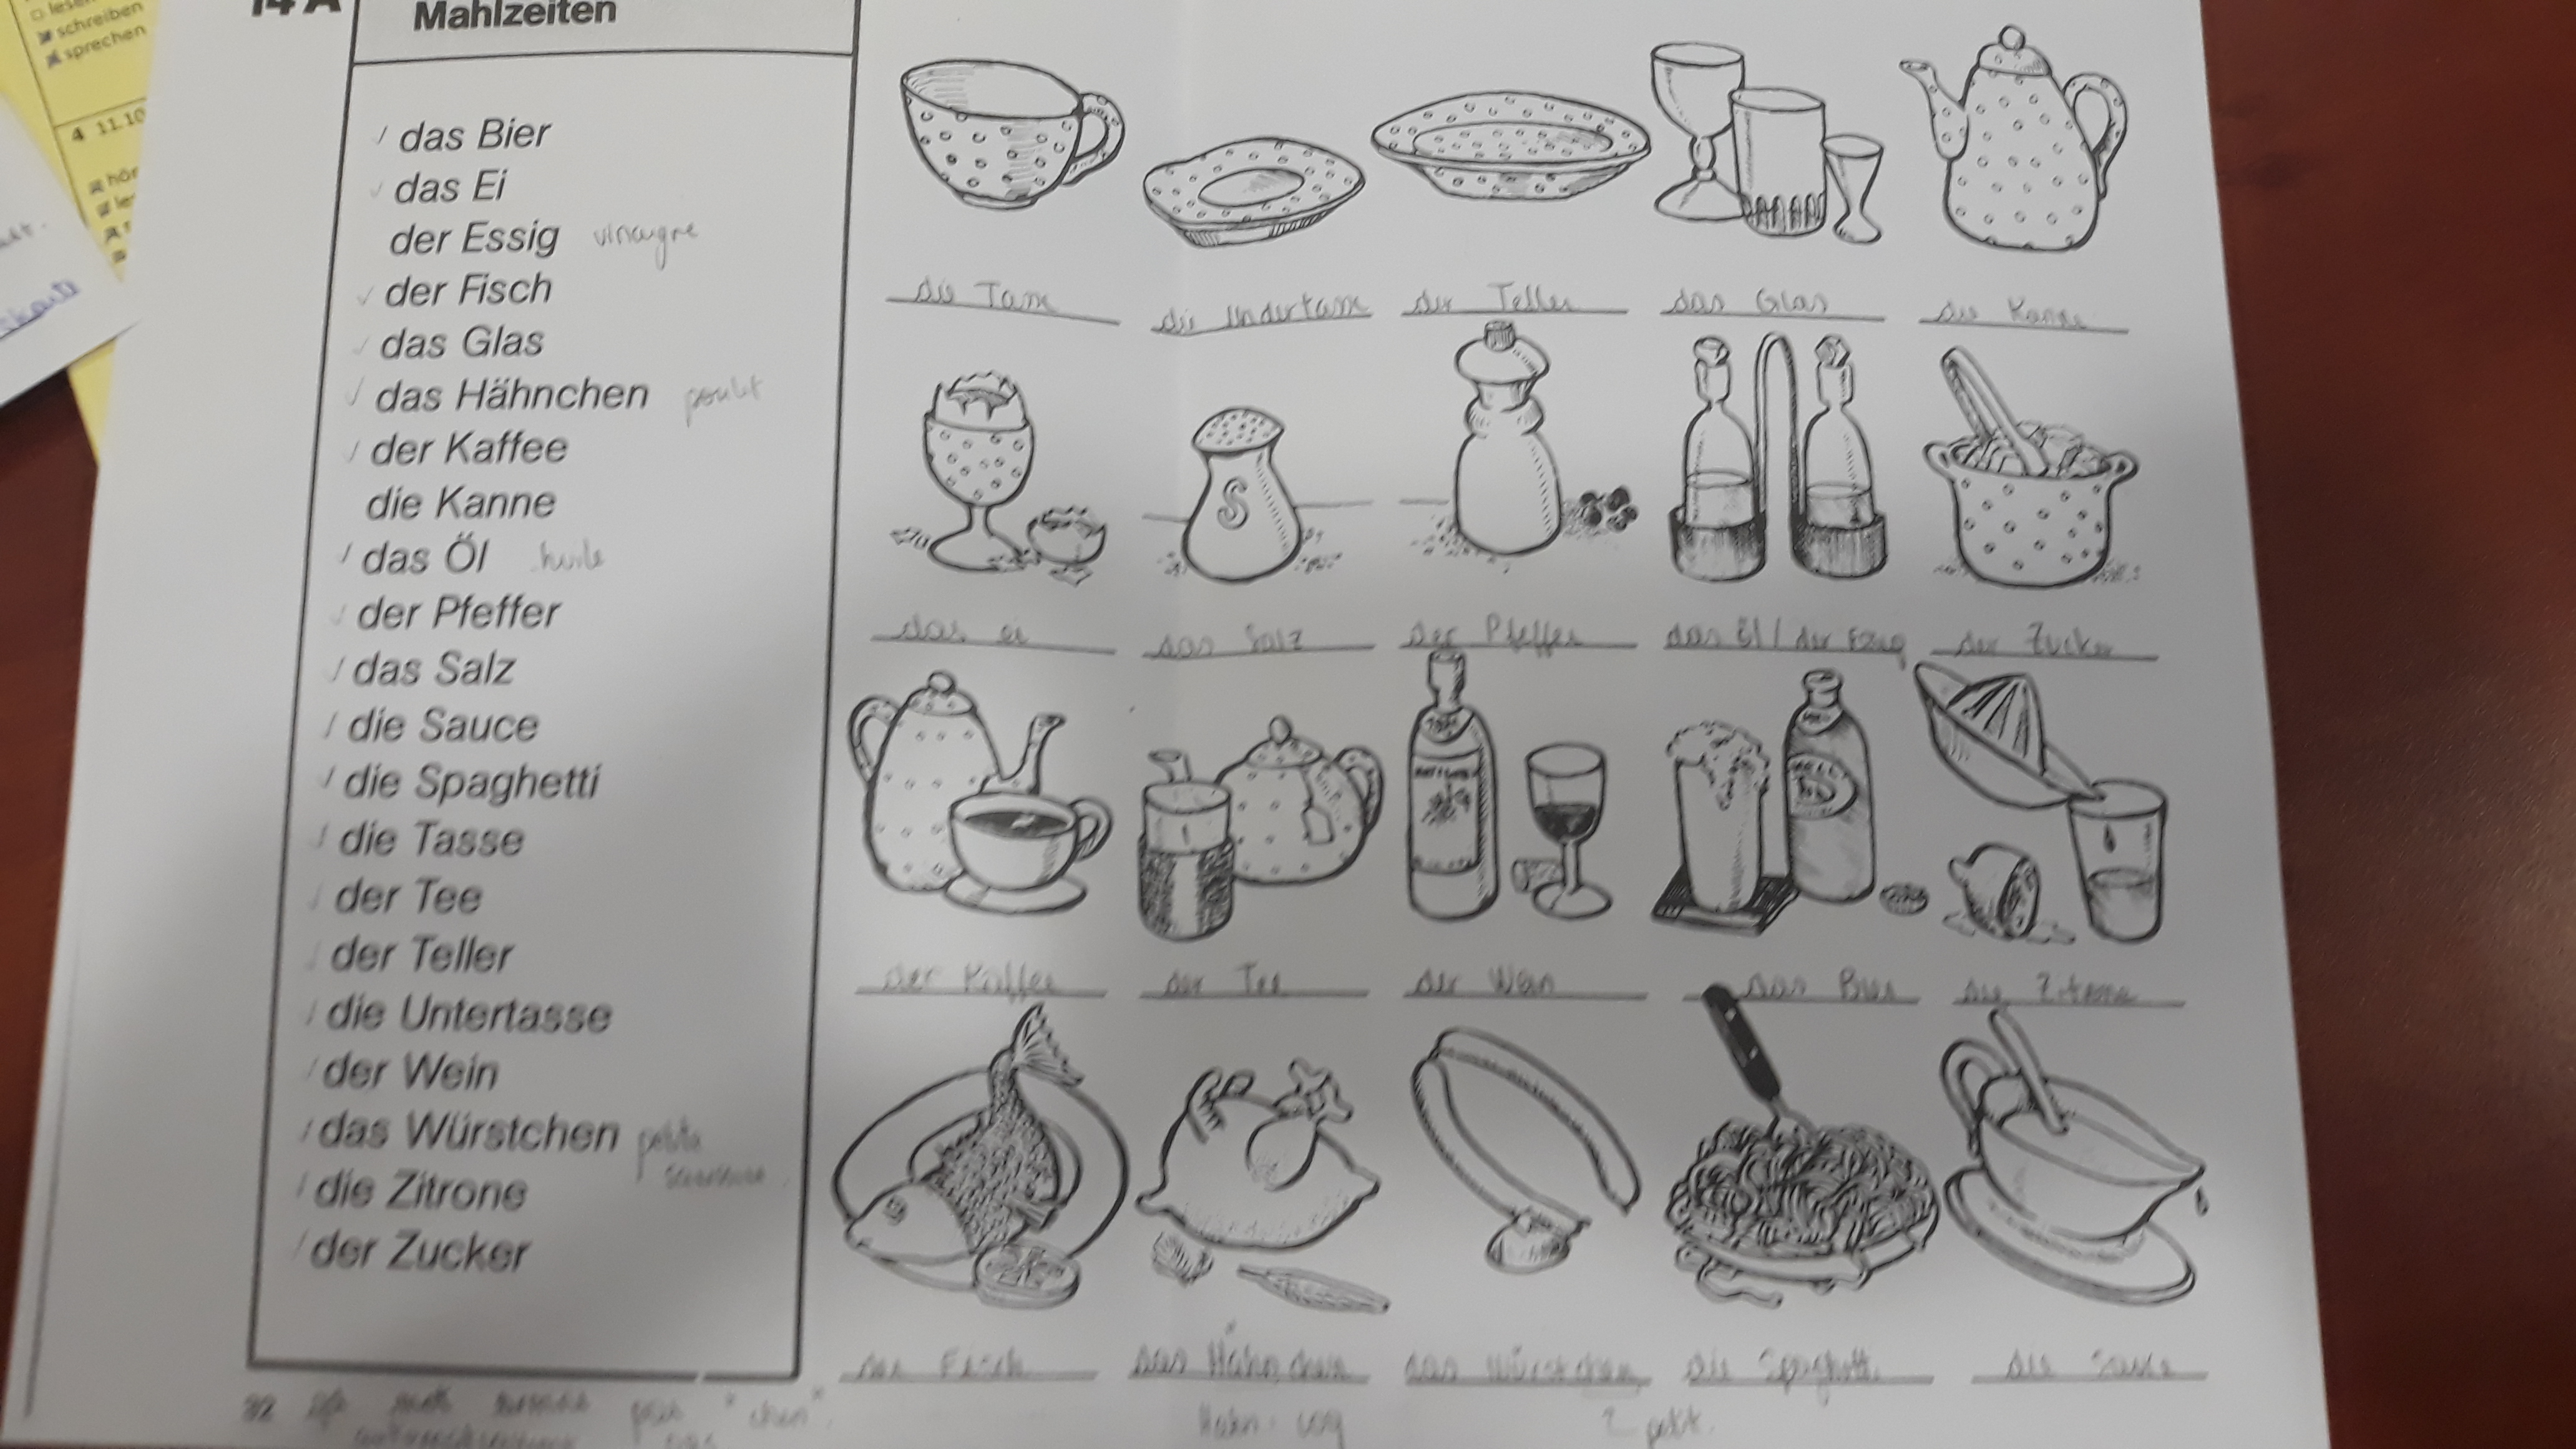 14 A
Mahlzeiten
das Bier
das Ei
der Essig vinaigre
der Fisch
das Glas
das Hähnchen poulet
der Kaffee
die Kanne
das Öl huile
der Pfeffer
das Salz
die Sauce
die Spaghetti
die Tasse
der Tee
der Teller
die Untertasse
der Wein
das Würstchen petite
die Zitrone
der Zucker
die Tasse
die Undertasse
der Teller
das Glas
die Kanne
das ei
das Salz
S
der Pfeffer
das Öl / der Essig
der Zucker
der Kaffee
der Tee
der Wein
das Bier
die Zitrone
der Fisch
das Hähnchen
das Würstchen
die Spaghetti
die Sauce
92
chen
petit
4 11.10
schreiben
sprechen